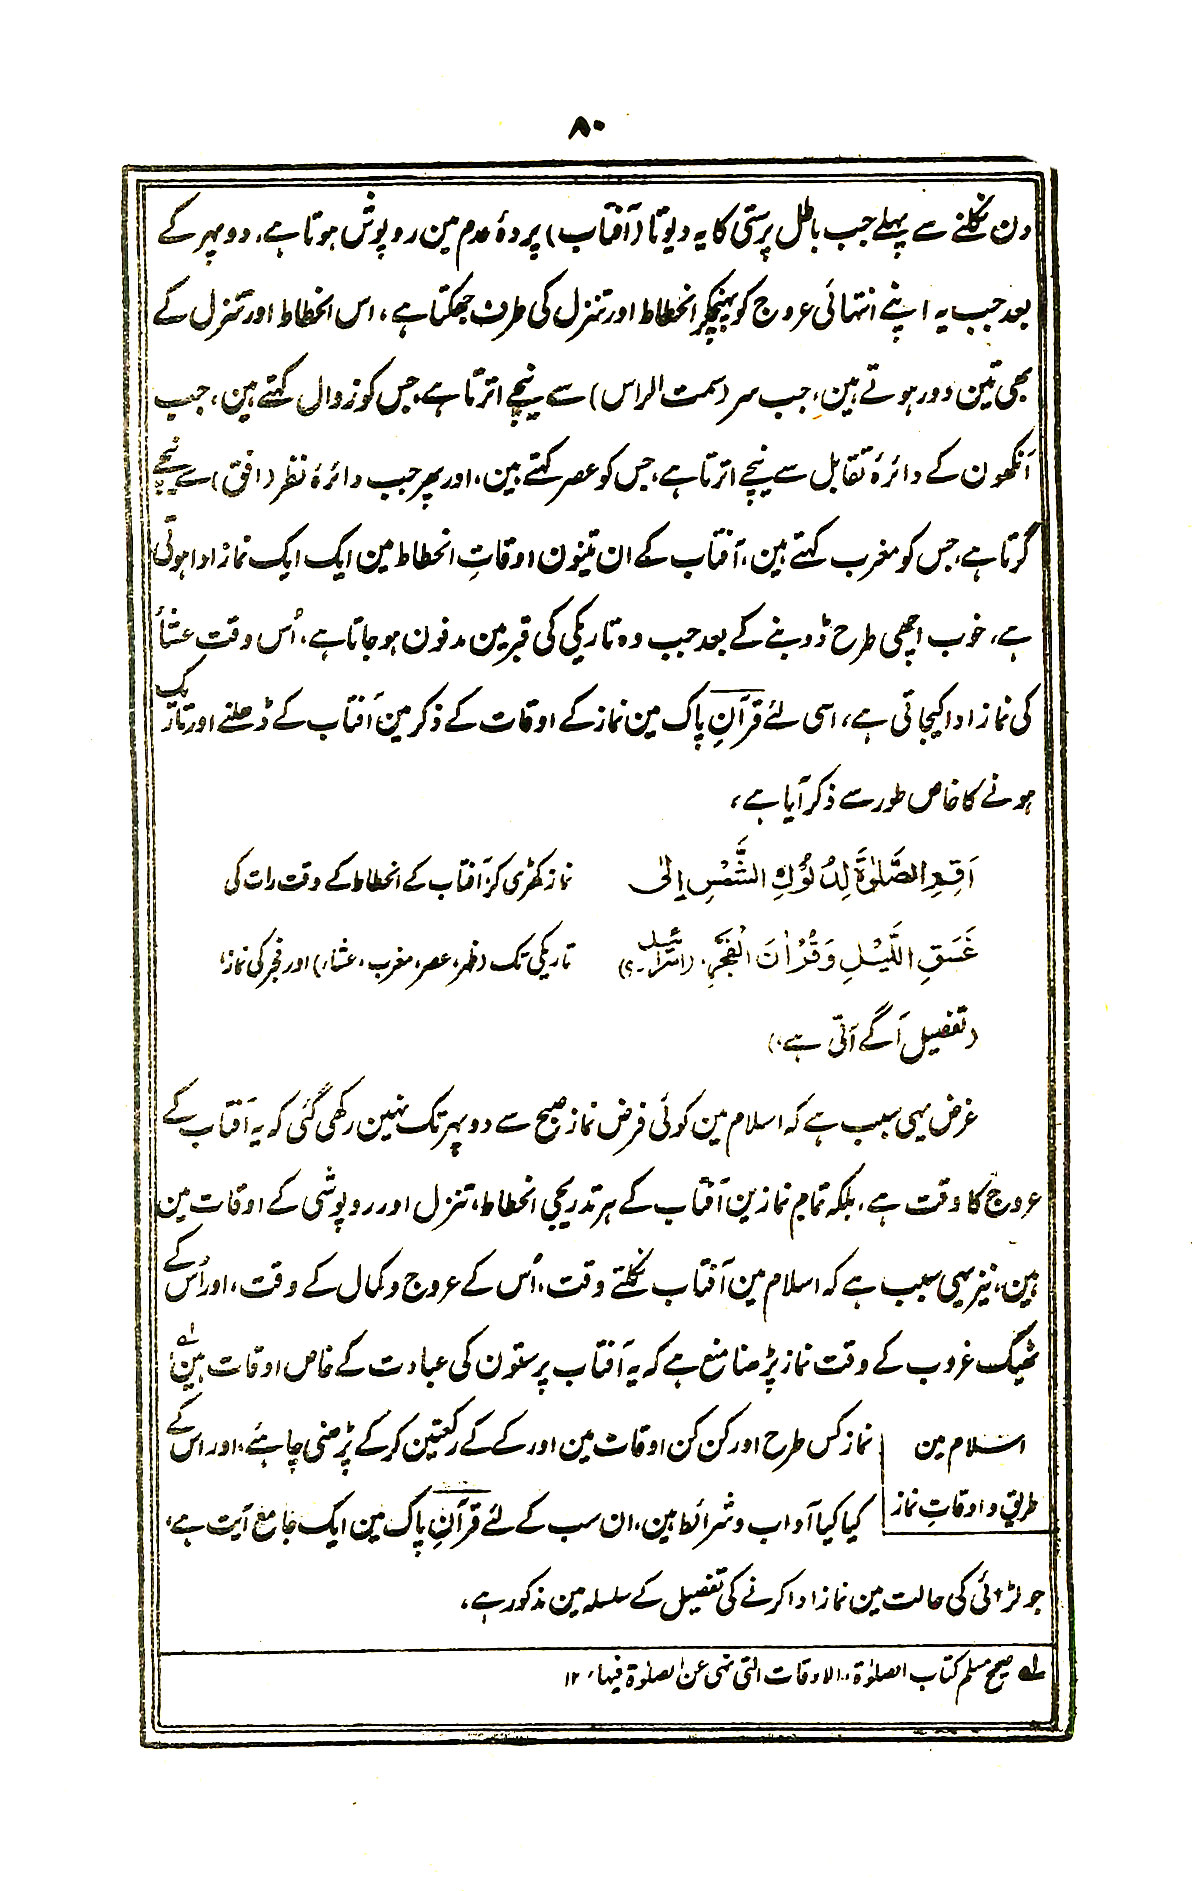 ۸۰
دن نکلنے سے پہلے جب باطل پرستی کا یہ دیوتا (آفتاب) پردۂ عدم مین روپوش ہوتا ہے، دوپہر کے
بعد جب یہ اپنے انتہائی عروج کو پہنچکر انحطاط اور تنزل کی طرف جھکتا ہے، اس انحطاط اور تنزل کے
بھی تین دور ہوتے ہین، جب سر (سمت الراس) سے نیچے اترتا ہے، جس کو زوال کہتے ہین، جب
آنکھون کے دائرۂ تقابل سے نیچے اترتا ہے، جس کو عصر کہتے ہین، اور پھر جب دائرۂ نظر (افق) سے نیچے
گرتا ہے، جس کو مغرب کہتے ہین، آفتاب کے ان تینون اوقاتِ انحطاط مین ایک ایک نماز ادا ہوتی
ہے، خوب اچھی طرح ڈوبنے کے بعد جب وہ تاریکی کی قبر مین مدفون ہو جاتا ہے، اُس وقت عشأ
کی نماز ادا کیجاتی ہے، اسی لئے قرآنِ پاک مین نماز کے اوقات کے ذکر مین آفتاب کے ڈھلنے اور تاریک
ہونے کا خاص طور سے ذکر آیا ہے،
اَقِمِ الصَّلٰوةَ لِدُلُوْكِ الشَّمْسِ اِلٰى نماز کھڑی کر آفتاب کے انحطاط کے وقت رات کی
غَسَقِ اللَّيْلِ وَقُرْاٰنَ الْفَجْرِ، (اسرائیل-۹) تاریکی تک (ظہر، عصر، مغرب، عشاء) اور فجر کی نماز،
(تفصیل آگے آتی ہے،)
غرض یہی سبب ہے کہ اسلام مین کوئی فرض نماز صبح سے دوپہر تک نہین رکھی گئی کہ یہ آفتاب کے
عروج کا وقت ہے، بلکہ تمام نمازین آفتاب کے ہر تدریجی انحطاط، تنزل اور روپوشی کے اوقات مین
ہین، نیز یہی سبب ہے کہ اسلام مین آفتاب نکلتے وقت، اُس کے عروج و کمال کے وقت، اور اُس کے
ٹھیک غروب کے وقت نماز پڑھنا منع ہے کہ یہ آفتاب پرستون کی عبادت کے خاص اوقات ہین لہ
اسلام مین نماز کس طرح اور کن کن اوقات مین اور کے کے رکعتین کر کے پڑھنی چاہئے، اور اس کے
طریق و اوقاتِ نماز کیا کیا آداب و شرائط ہین، ان سب کے لئے قرآنِ پاک مین ایک جامع آیت ہے،
جو لڑائی کی حالت مین نماز ادا کرنے کی تفصیل کے سلسلہ مین مذکور ہے،
لہ صحیح مسلم کتاب الصلوٰۃ، الاوقات التی نہی عن الصلوٰۃ فیہا، ۱۲